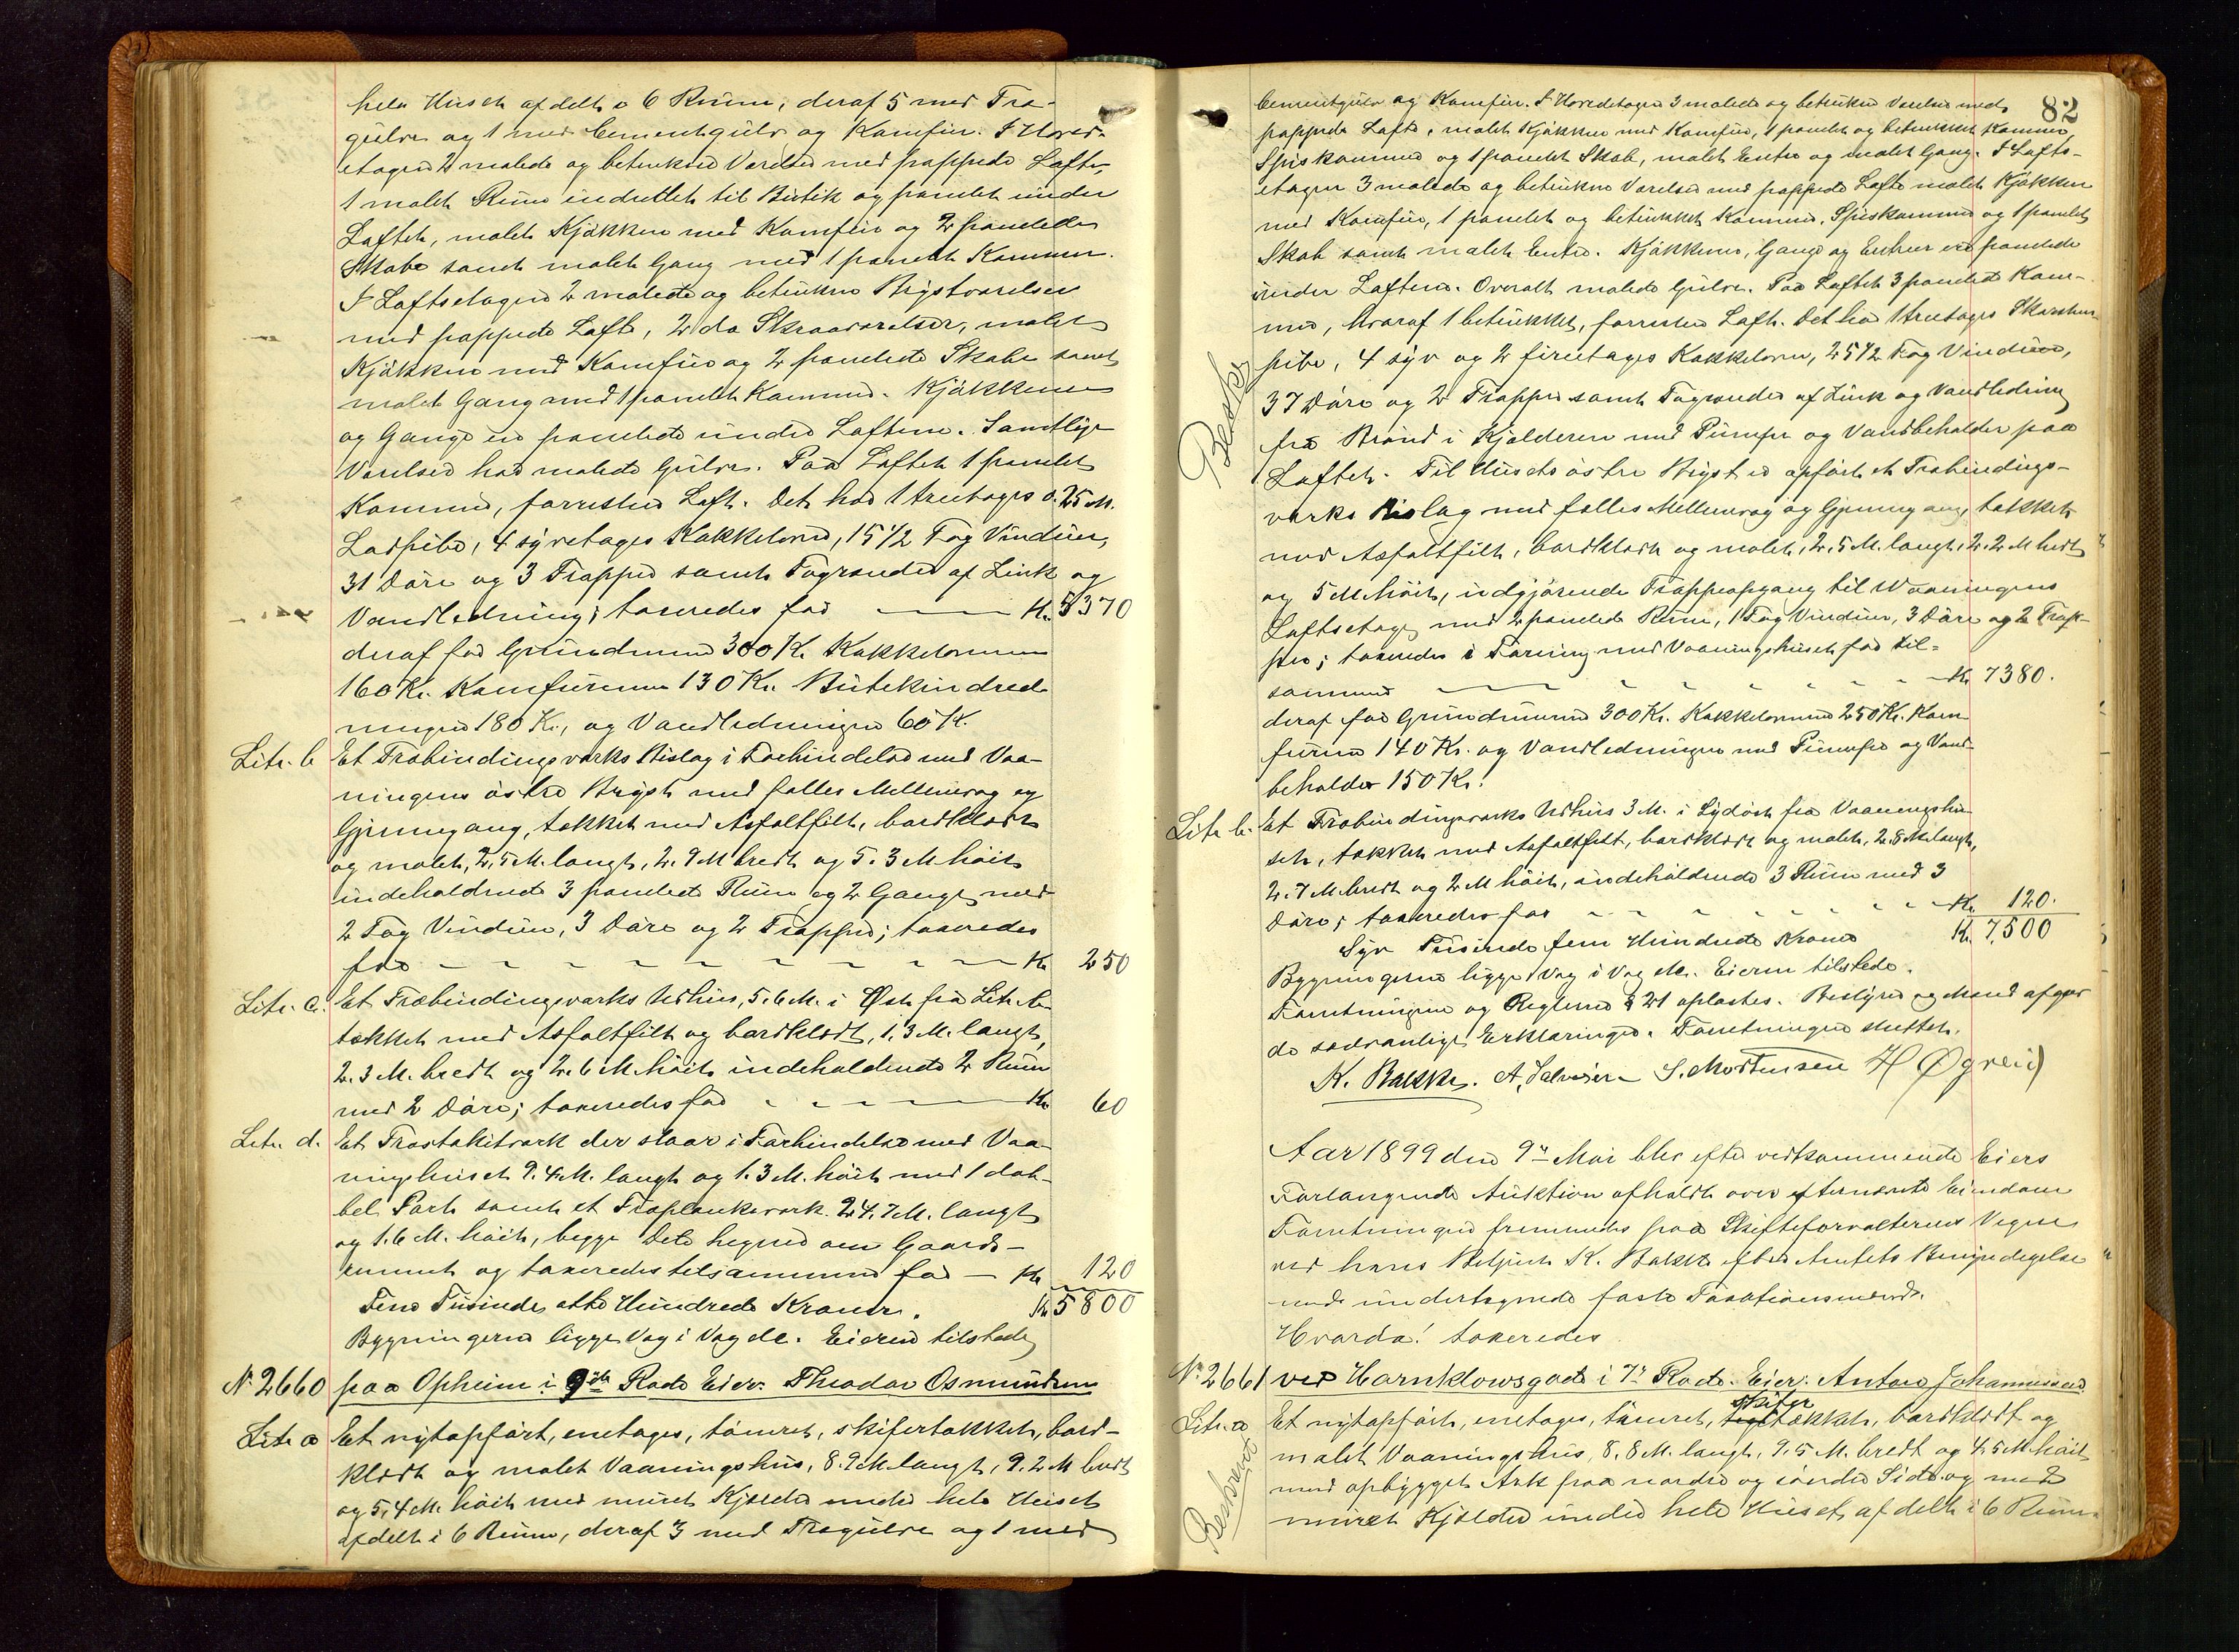 hele Huset afdelt i 6 Rum, deraf 5 med Træ-
gulve og 1 med Cementgulv og Komfur. I Hoved-
etagen 2 malede og betrukne Værelser med pappede Lofte,
1 malet Rum indrettet til Butik og panelet under
Loftet, malet Kjøkken med Komfur og 2 panelede
Skabe samt malet Gang med 1 panelet Kammer.
I Loftsetagen 2 malede og betrukne Brystværelser
med pappede Lofte, 2 do Skraaværelser, malet
Kjøkken med Komfur og 2 panelede Skabe samt
malet Gang med 1 panelet Kammer. Kjøkkenene
og Gange er panelede under Loftene. Samtlige
Værelser har malede Gulve. Paa Loftet 1 panelet
Kammer, forresten Loft. Det har 1 treetages 0.25 M.
Ladpibe, 4 syvetages Kakkelovne, 15 1/2 Fag Vinduer,
31 Døre og 3 Trapper samt Tagrender af Zink og
Vandledning; taxeredes for Kr. 5370
deraf for Grundmuren 300 Kr. Kakkelovnene
160 Kr. Komfurerne 130 Kr. Butikindred-
ningen 180 Kr., og Vandledningen 60 Kr.
Litr. b Et Træbindingsverks Bislag i Forbindelse med Vaa-
ningens østre Bryst med fælles Mellemvæg og
Gjennegang, tækket med Asfaltfilt, bordklædt
og malet, 2,5 M. langt, 2.9 M bredt og 5.3 M høit
indeholdende 3 panelede Rum og 2 Gange med
2 Fag Vinduer, 3 Døre og 2 Trapper; taxeredes
for Kr. 250
Litr. c. Et Træbindingsverks Udhus, 5.6 M. i Øst fra Litr. b
tækket med Asfaltfilt og bordklædt, 1.3 M. langt,
2.3 M. bredt og 2.6 M. høit indeholdende 2 Rum
med 2 Døre; taxeredes for Kr. 60
Litr. d. Et Træstakitværk der staar i Forbindelse med Vaa-
ningshuset 9.4 M. langt og 1.3 M. høit med 1 dob-
bel Port samt et Træplankeværk 24.7 M. langt
og 1.6 M. høit, begge Dele hegner om Gaards-
rummet og taxeredes tilsammen for Kr. 120
Fem Tusinde otte Hundrede Kroner. Kr 5800
Bygningerne ligge Væg i Væg etc. Eieren tilstede
N. 2660 paa Opheim i 9de Rode Eier: Theodor Osmundsen
Litr. a Et nyopført, enetages, tømret, skifertækket, bord-
klædt og malet Vaaningshus, 8.9 M. langt, 9.2 M bredt
og 5,4 M. høit med muret Kjælder under hele Huset
afdelt i 6 Rum, deraf 3 med Trægulve og 1 med
82
Cementgulv og Komfur. I Hovedetagen 3 malede og betrukne Værelser med
pappede Lofte, malet Kjøkken med Komfur, 1 panelet og betrukket Kammer,
Spiskammer og 1 panelet Skab, malet Entre og malet Gang. I Lofts-
etagen 3 malede og betrukne Værelser med pappede Lofte malet Kjøkken
med Komfur, 1 panelet og betrukket Kammer, Spiskammer og 1 panelet
Skab samt malet Entre. Kjøkkener, Gange og Entreer er panelede
under Loftene. Overalt malede Gulve. Paa Loftet 3 panelede Kam-
mer, hvoraf 1 betrukket, forresten Loft. Det har 1 treetages Skorstens-
pibe, 4 syv og 2 fireetages Kakkelovne, 25 1/2 Fag Vinduer,
37 Døre og 2 Trapper samt Tagrender af Zink og Vandledning
fra Brønd i Kjælderen med Pumpe og Vandbeholder paa
Loftet. Til Husets østre Bryst er opført et Træbindings-
verks Bislag med fælles Mellemvæg og Gjennegang, tækket
med Asfaltfilt, bordklædt og malet, 2,5 M. langt, 2.2 M bredt
og 5 M høit, udgjørende Trappeopgang til Vaaningens
Loftsetage med 2 panelede Rum, 1 Fag Vinduer, 3 Døre og 2 Trap-
per; taxeredes i Forening med Vaaningshuset for til-
sammen Kr. 7380.
deraf for Grundmuren 300 Kr. Kakkelovnene 250 Kr. Kom-
furene 140 Kr. og Vandledningen med Pumpe og Vand-
beholder 150 Kr.
Litr b. Et Træbindingsverks Udhus 3 M. i Sydøst fra Vaaningshu-
set, tækket med Asfaltfilt, bordklædt og malet, 2.8 M. langt,
2.7 M. bredt og 2 M høit, indeholdende 3 Rum med 3
Døre; taxeredes for Kr. 120.
Syv Tusinde fem Hundrede Kroner Kr. 7,500
Bygningerne ligge Væg i Væg etc. Eieren tilstede.
Forretningen og Reglerne § 21 oplæstes. Bestyrer og Mænd afgav
de sædvanlige Erklæringer. Forretningen sluttet.
K. Bakke. A. Salvesen S. Mortensen H Øgreid
Aar 1899 den 9de Mai blev efter vedkommende Eiers
Forlangende Auktion afholdt over efternævnte Eiendom
Forretningen fremmedes paa Skifteforvalterens Vegne
ved hans Betjent K. Bakke efter Amtets Bemyndigelse
med undertegnede faste Taxationsmænd.
Hvorda! taxeredes
No 2661 ved Hornklowsgade i 7de Rode. Eier: Anton Johannessen
Litr. a Et nyopført, enetages, tømret, skifertækket, bordklædt og
malet Vaaningshus, 8.8 M. langt, 9.5 M. bredt og 4.5 M høit
med opbygget Ark paa nordre og søndre Side og med
muret Kjælder under hele Huset, afdelt i 6 Rum